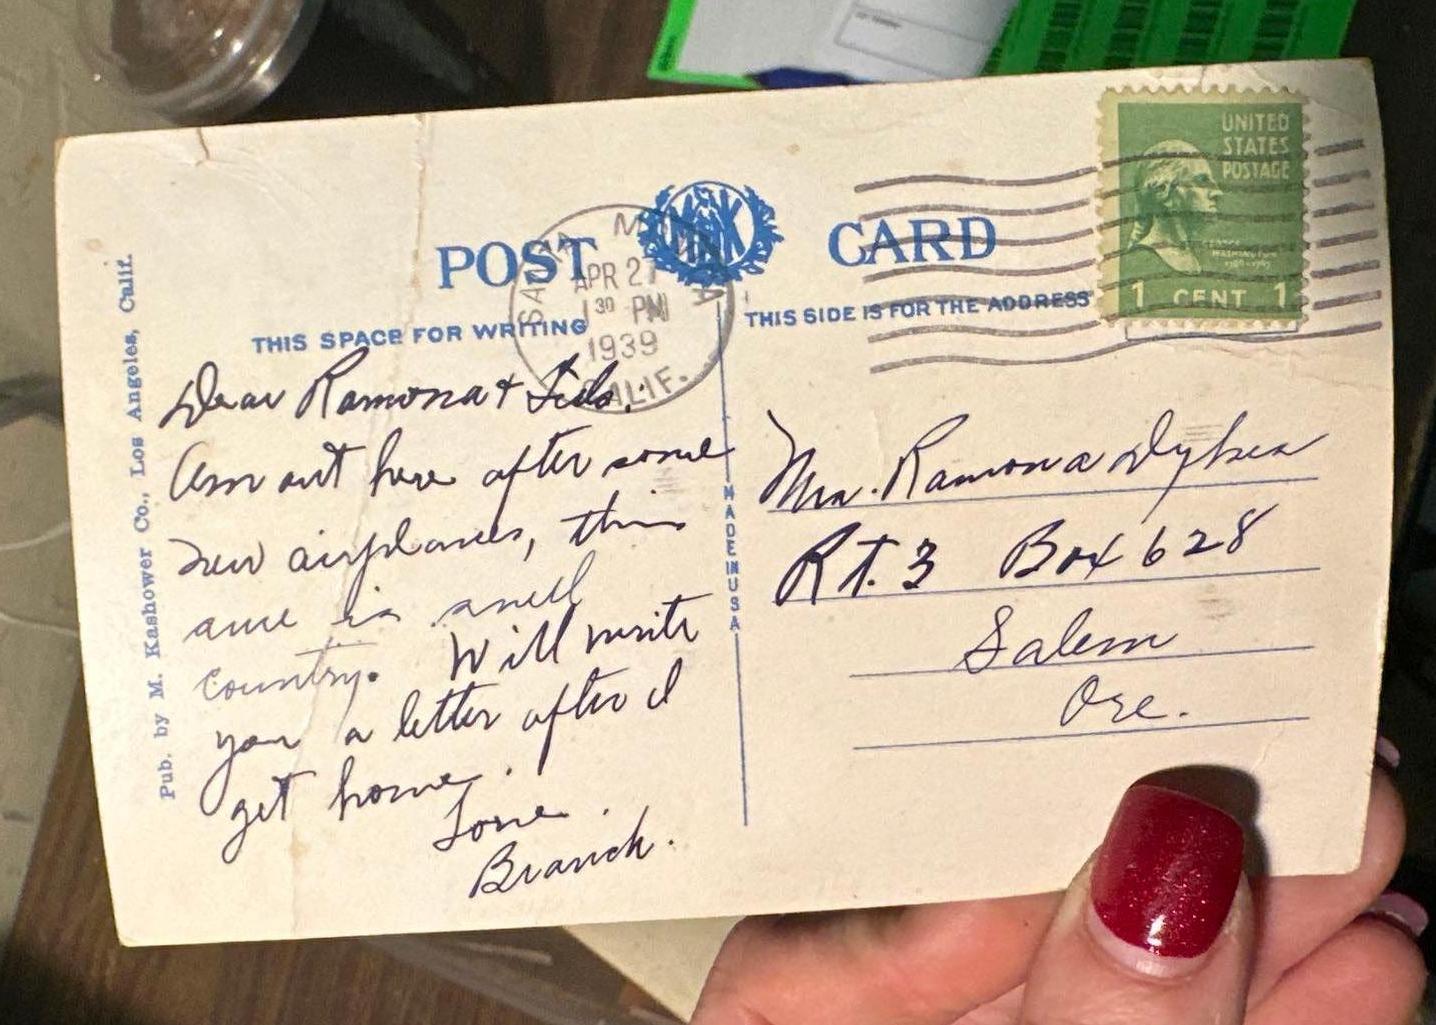 POST MKK CARD
UNITED
STATES
POSTAGE
1 CENT 1
SANTA MONICA
APR 27
1 30 PM
1939
CALIF.
THIS SPACE FOR WRITING
THIS SIDE IS FOR THE ADDRESS
Dear Ramona & Fido.
Am out here after some
new airplanes, this
sure is swell
country. Will write
you a letter after I
get home.
Love.
Branch.
Mrs. Ramona Dykes
Rt. 3 Box 628
Salem
Ore.
MADE IN USA
Pub. by M. Kashower Co., Los Angeles, Calif.